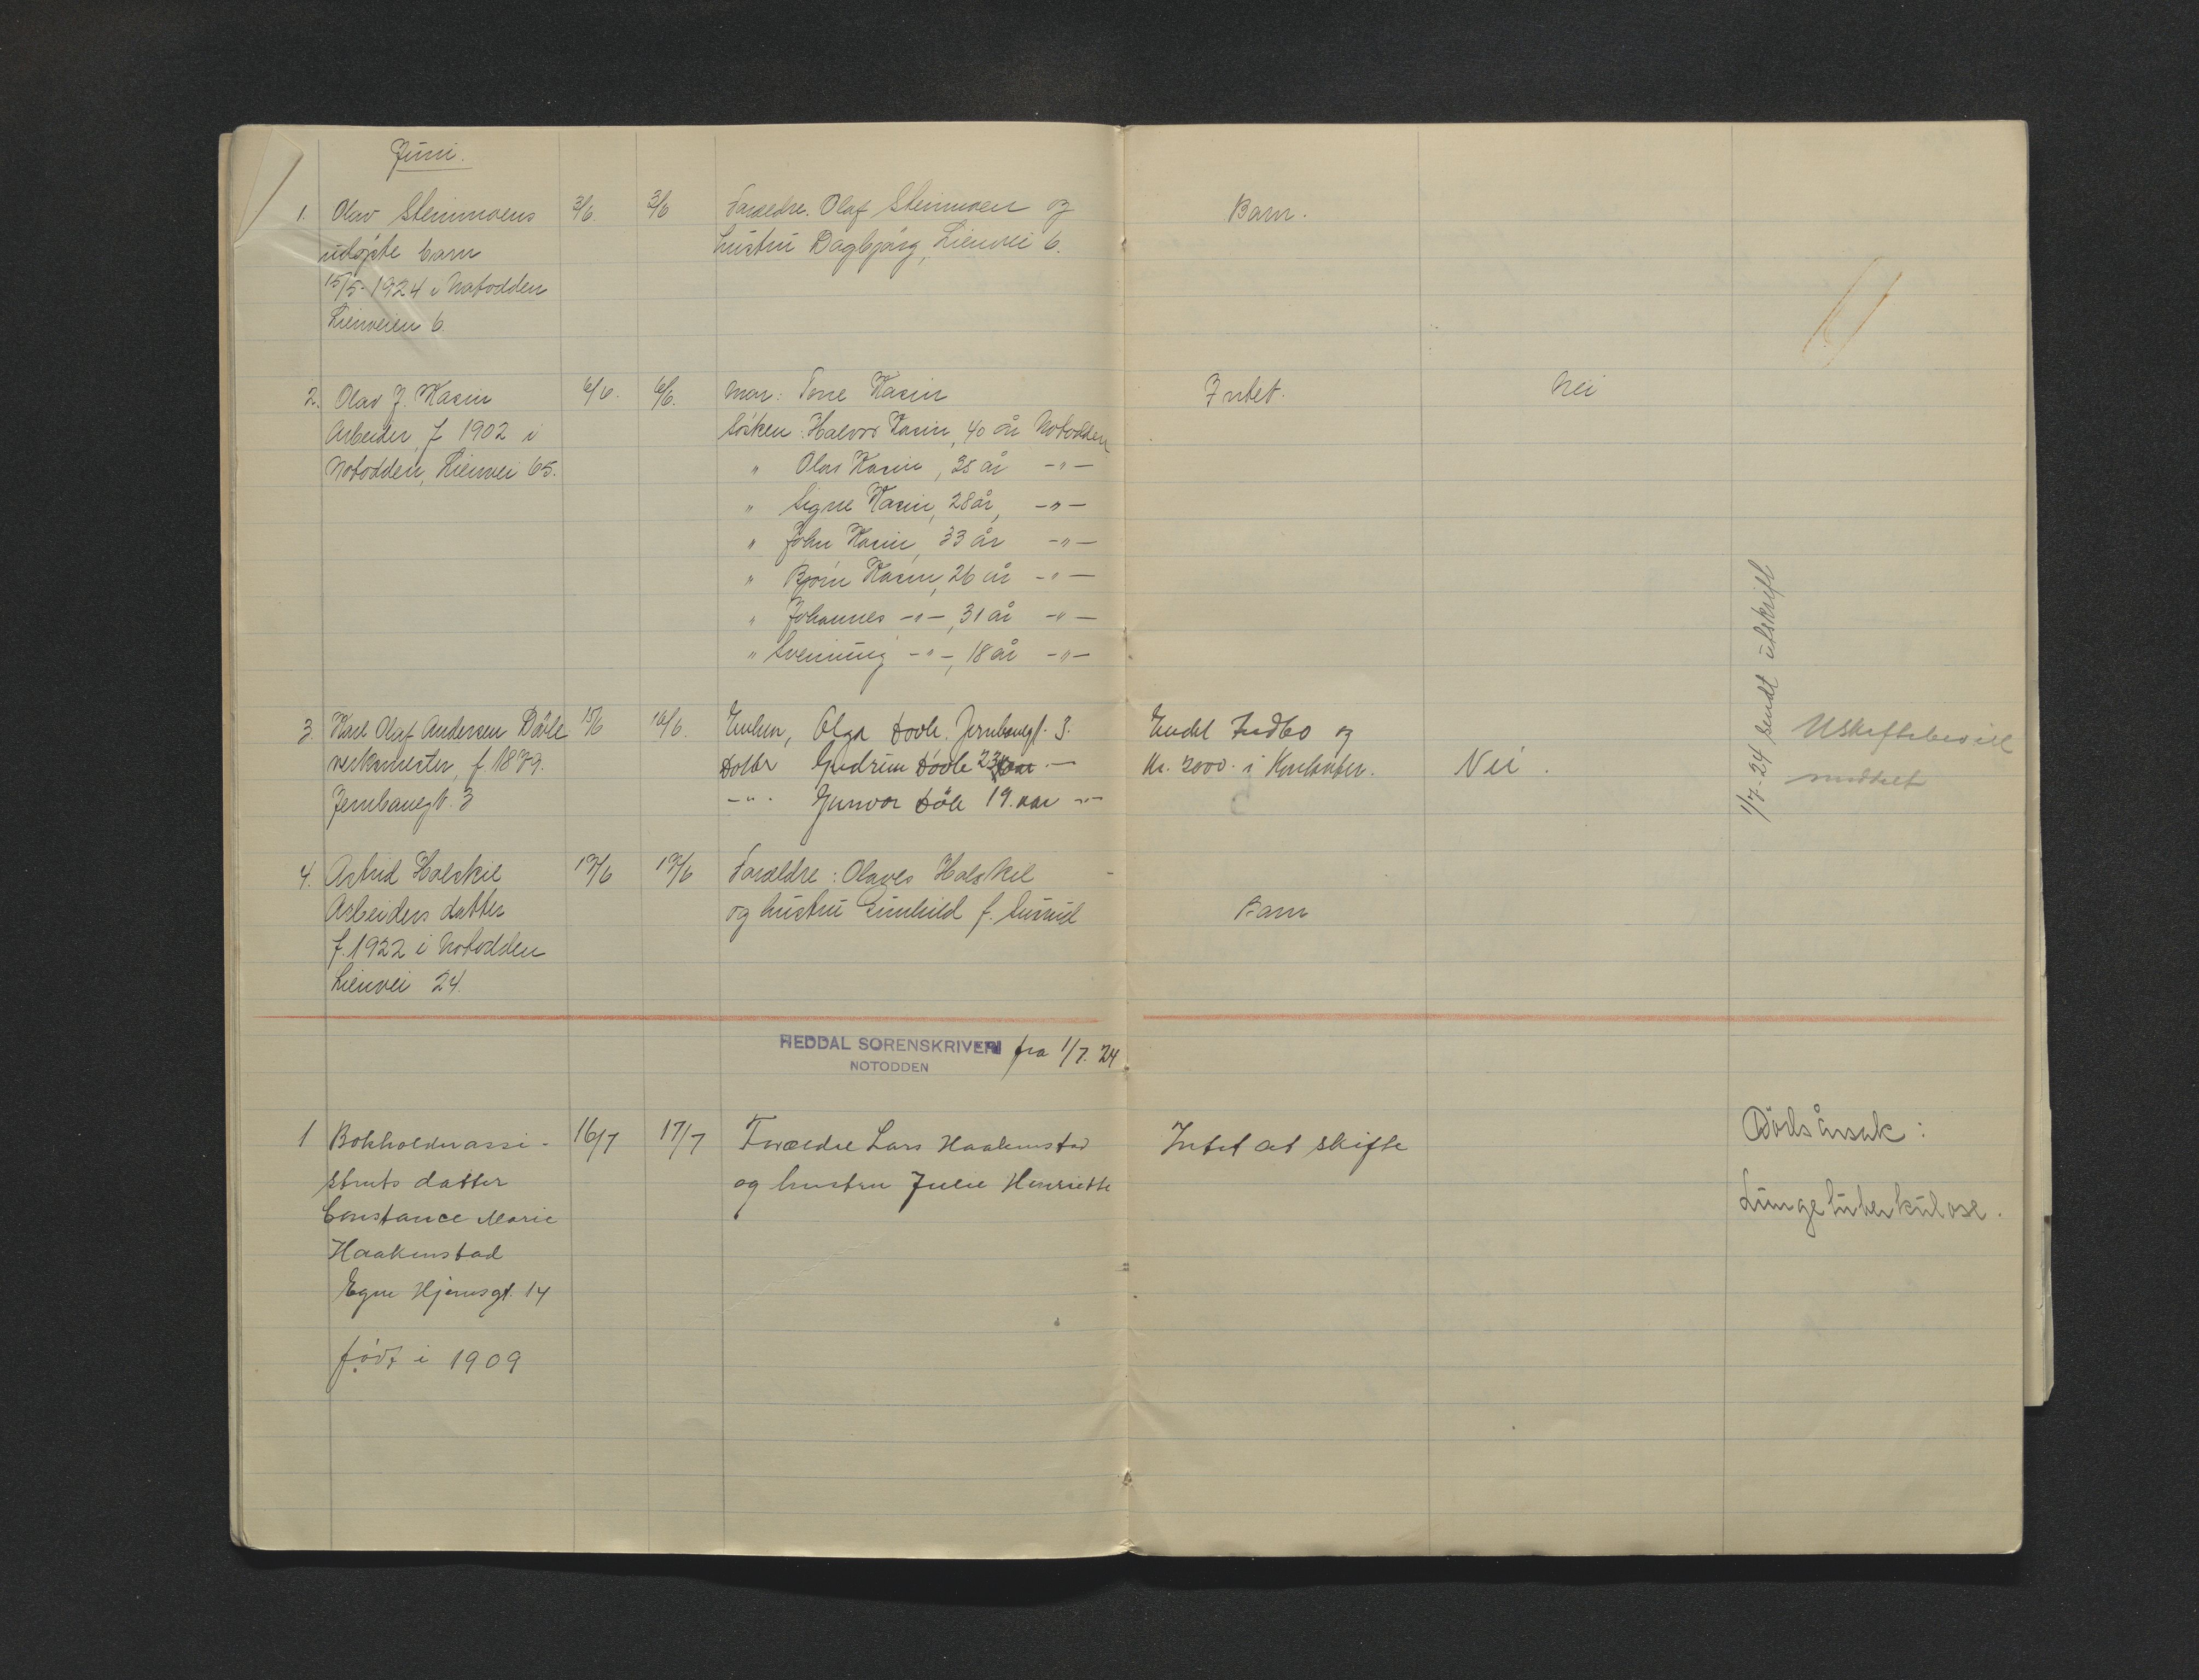 Juni.
1. Olav Steinmoens 3/6 3/6 Forældre. Olaf Steinmoen og Barn.
udøpte barn hustru Dagbjørg, Lienvei 6.
15/5-1924 i Notodden
Lienveien 6
2. Olav J. Kasin 6/6. 6/6. Mor: Tone Kasin Intet. Nei
Arbeider, f 1902 i Søsken: Halvor Kasin, 40 år Notodden
Notodden, Lienvei 65. " Olav Kasin, 35 år -"-
" Signe Kasin, 28 år, -"-
" John Kasin, 33 år -"-
" Bjørn Kasin, 26 år -"-
" Johannes -"-, 31 år -"-
" Sveinung -"-, 18 år -"-
3. Karl Olaf Andersen Døvle 15/6 16/6. Enken, Olga Døvle. Jernbanegt. 3. Endel Indbo og
verkmester, f. 1879. Datter Gudrun Døvle 23 aar -"- Kr. 2000.- i Kontanter. Nei.
Jernbanegt. 3 -"- Gunvor Døvle 19. aar -"-
1/7-24 sendt utskrift
Uskiftebevill
meddelt
4. Astrid Halskil 17/6 17/6 Forældre: Olaves Halskil
Arbeiders datter og hustru Gunhild f. Barn
f. 1922 i Notodden
Lienvei 24.
HEDDAL SORENSKRIVERI fra 1/7. 24
NOTODDEN
1 Bokholderassi- 16/7 17/7 Forældre Lars Haakenstad Intet at skifte Dödsårsak:
stents datter og hustru Julie Henriette Lungetuberkulose.
Constance Marie
Haakenstad
Egne Hjemsgt. 14
født i 1909